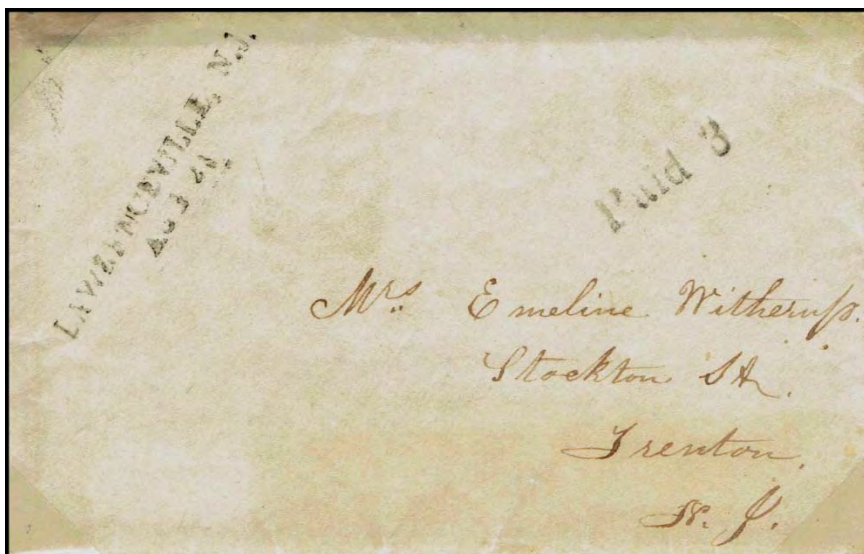 LAWRENCEVILLE, N.J.
Paid 3
Mrs Emeline Witherup.
Stockton St.
Trenton.
N. J.